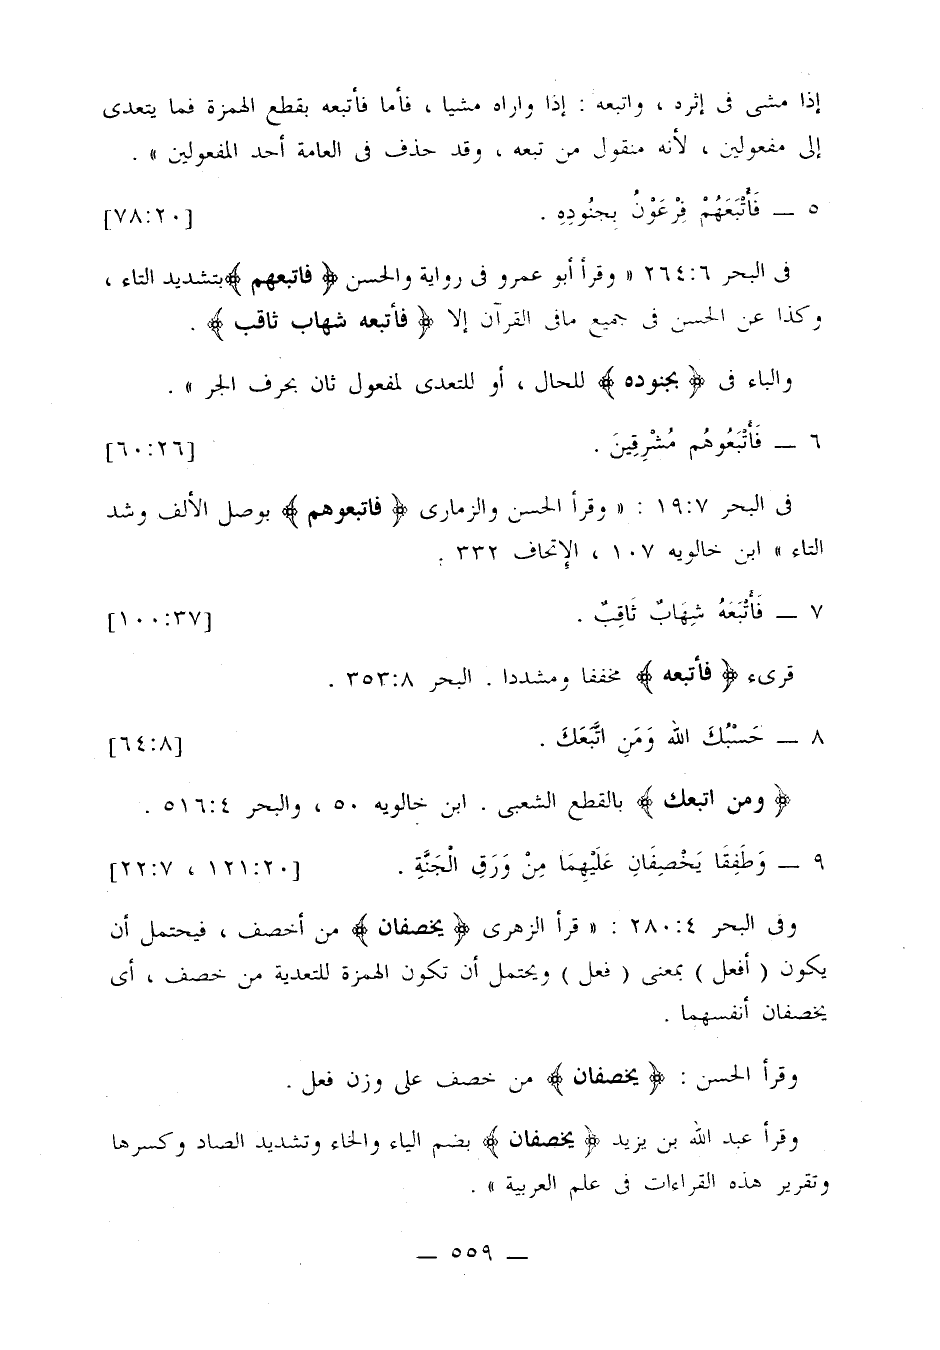 إذا مشى فى إثره ، واتبعه : إذا واراه مشيا ، فأما فأتبعه بقطع الهمزة فما يتعدى
إلى مفعولين ، لأنه منقول من تبعه ، وقد حذف فى العامة أحد المفعولين » .
٥ — فَأَتْبَعَهُمْ فِرْعَوْنُ بِجنُودِهِ . [٧٨:٢٠]
فى البحر ٢٦٤:٦ « وقرأ أبو عمرو فى رواية والحسن ﴿ فاتبعهم ﴾بتشديد التاء ،
وكذا عن الحسن فى جميع مافى القرآن إلا ﴿ فأتبعه شهاب ثاقب ﴾ .
والباء فى ﴿ بجنوده ﴾ للحال ، أو للتعدى لمفعول ثان بحرف الجر » .
٦ — فَأَتْبَعُوهُم مُشْرِقِينَ . [٦٠:٢٦]
فى البحر ١٩:٧ : « وقرأ الحسن والزمارى ﴿ فاتبعوهم ﴾ بوصل الألف وشد
التاء » ابن خالويه ١٠٧ ، الإتحاف ٣٣٢ .
٧ — فَأَتْبَعَهُ شِهَابٌ ثَاقِبٌ . [١٠٠:٣٧]
قرىء ﴿ فأتبعه ﴾ مخففا ومشددا . البحر ٣٥٣:٨ .
٨ — حَسْبُكَ الله وَمَنِ اتَّبَعَكَ . [٦٤:٨]
﴿ ومن اتبعك ﴾ بالقطع الشعبى . ابن خالويه ٥٠ ، والبحر ٥١٦:٤ .
٩ — وَطَفِقَا يَخْصِفَانِ عَلَيْهِمَا مِنْ وَرَقِ الْجَنَّةِ . [١٢١:٢٠ ، ٢٢:٧]
وفى البحر ٢٨٠:٤ : « قرأ الزهرى ﴿ يخصفان ﴾ من أخصف ، فيحتمل أن
يكون ( أفعل ) بمعنى ( فعل ) ويحتمل أن تكون الهمزة للتعدية من خصف ، أى
يخصفان أنفسهما .
وقرأ الحسن : ﴿ يخصفان ﴾ من خصف على وزن فعل .
وقرأ عبد الله بن يزيد ﴿ يخصفان ﴾ بضم الياء والخاء وتشديد الصاد وكسرها
وتقرير هذه القراءات فى علم العربية » .
— ٥٥٩ —